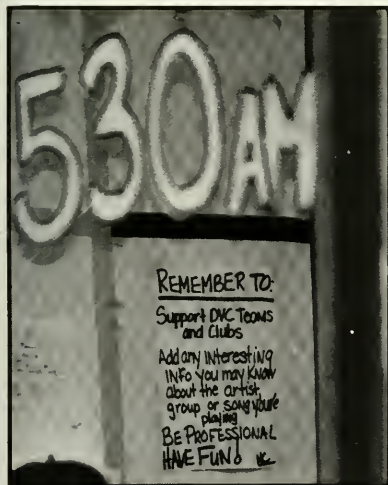 530AM
REMEMBER TO:
Support DVC Teams
and Clubs
Add any interesting
info you may know
about the artist,
group or song you're
playing
BE PROFESSIONAL
HAVE FUN!